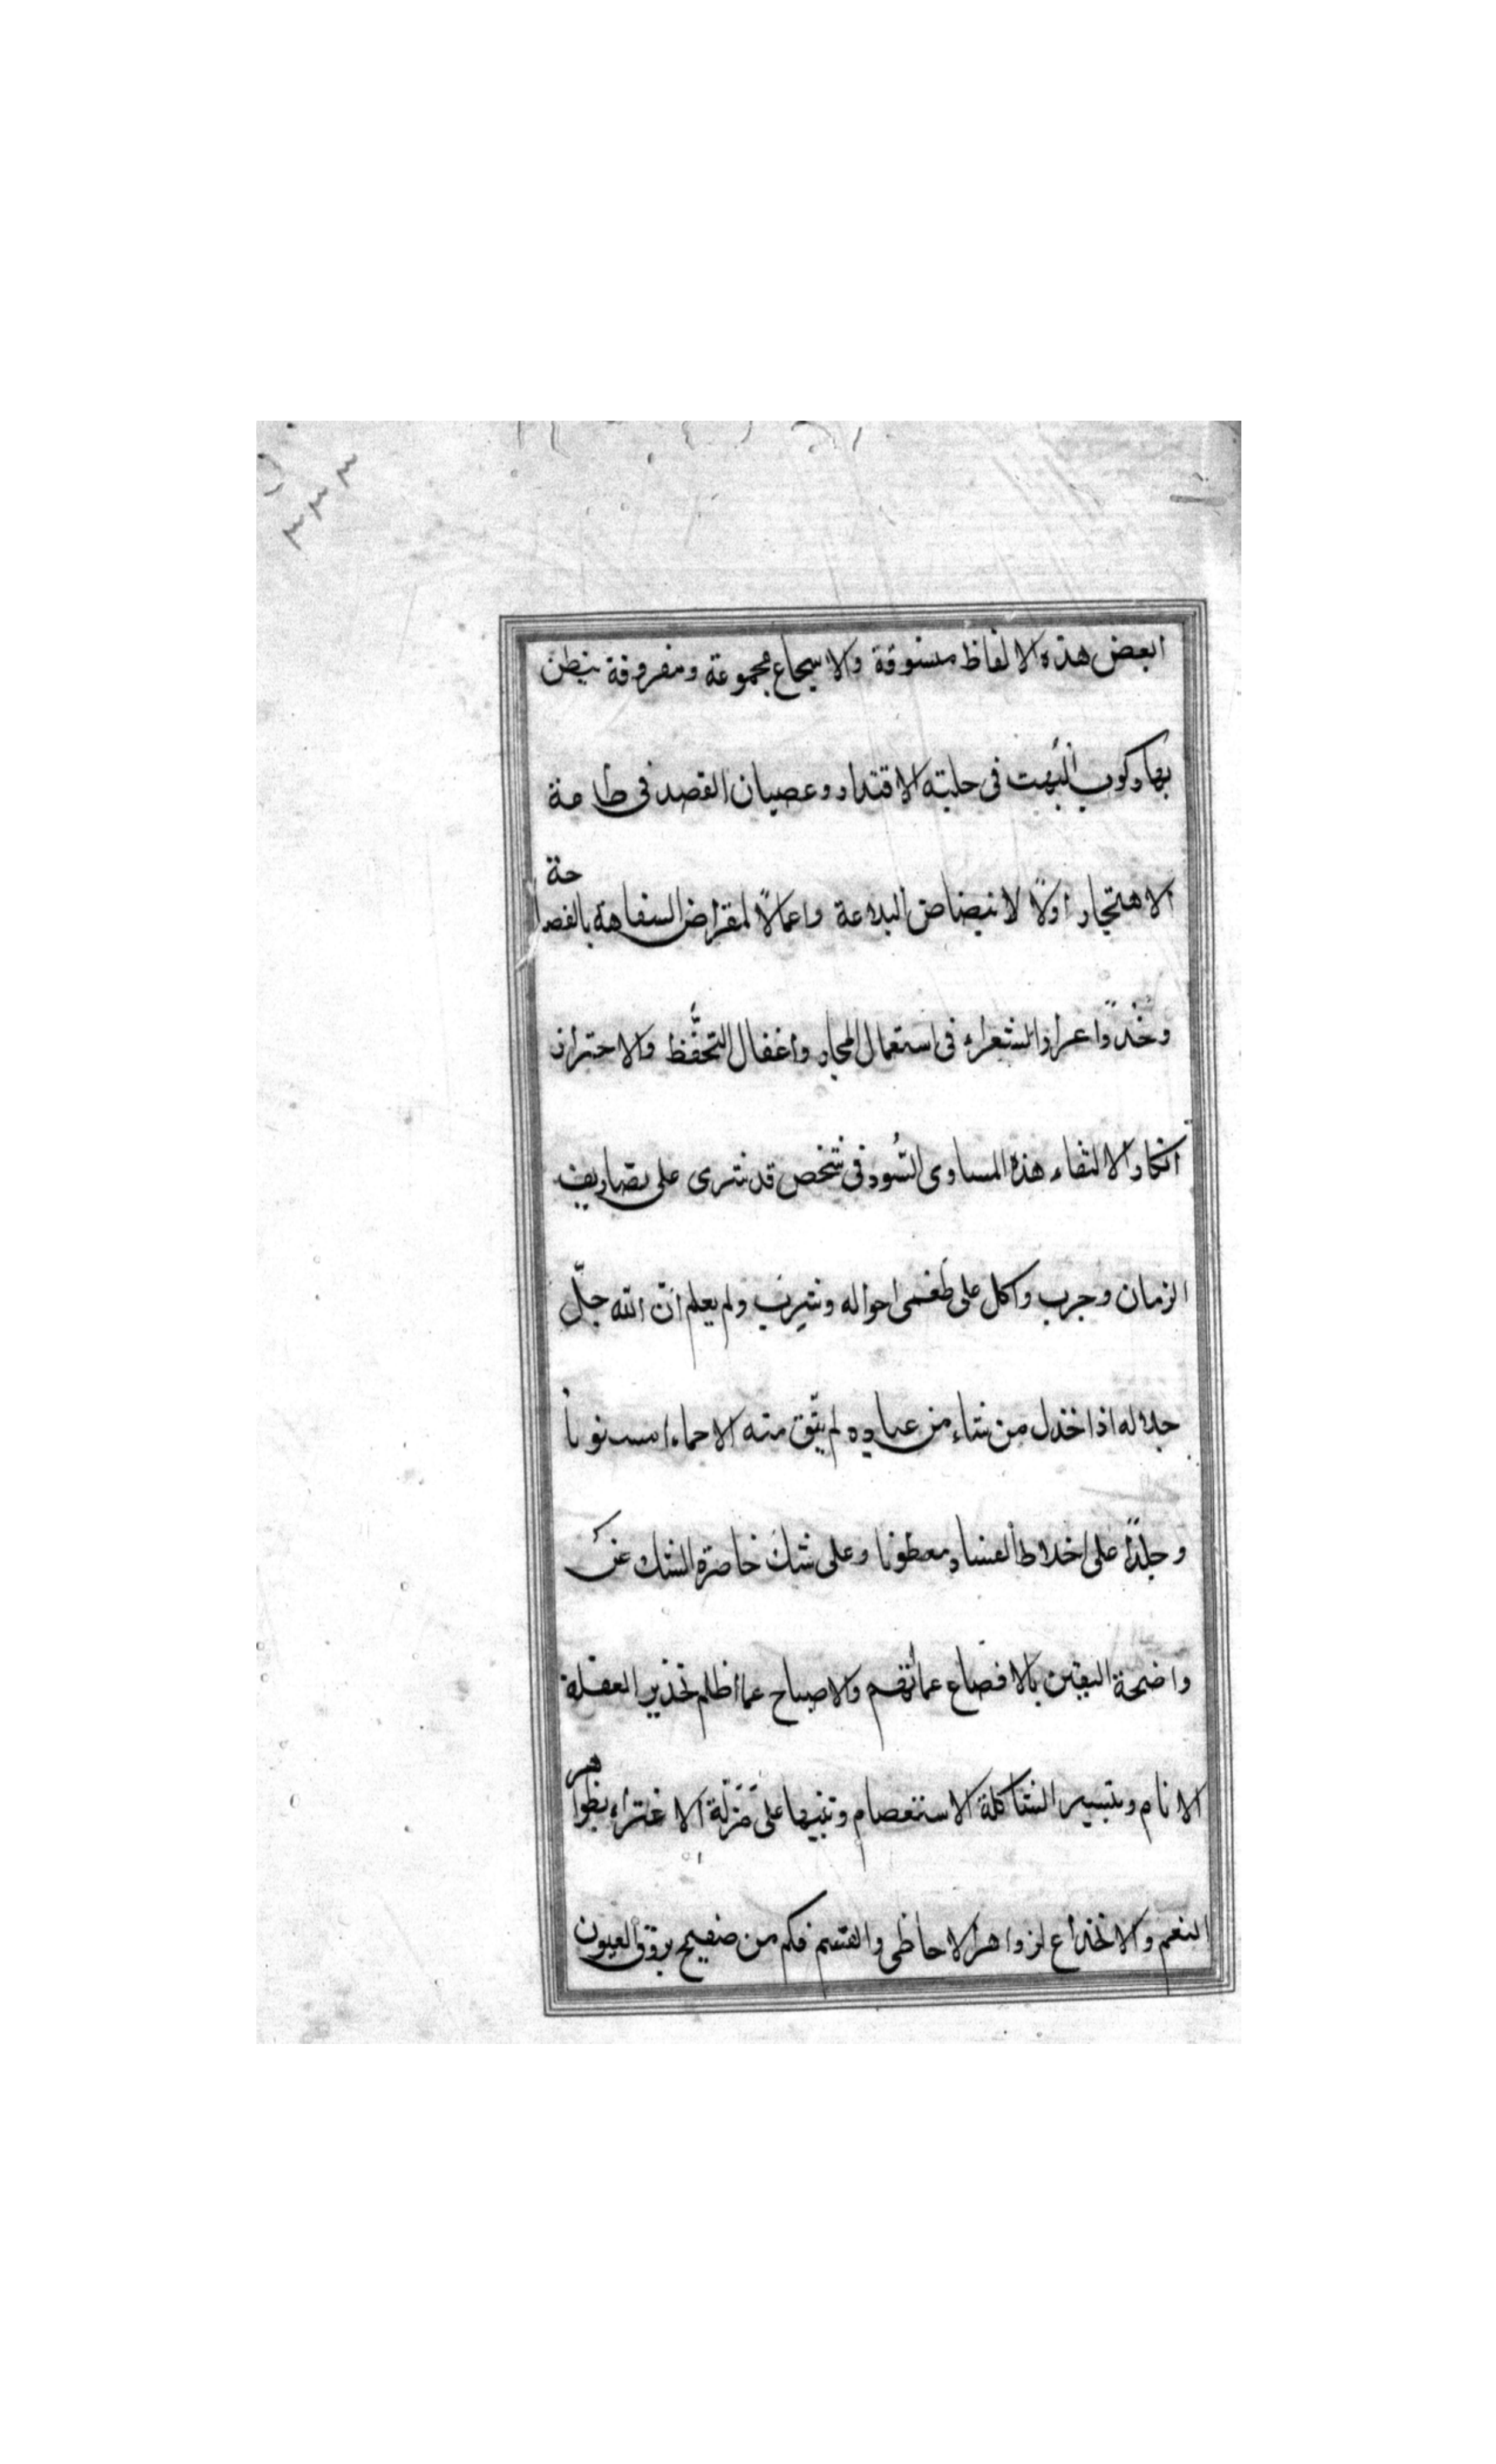 البعض هذه الالفاظ مسوقة والاسجاع مجموعة ومفروقة يبطن
بها ركوب البهت في حلبته الاقتدار وعصيان القصد في طاعة
الاهتجار اولًا لانبضاض البلاعة واعمالًا لمقراض السفاهة بالفصاحة
وخذوا عرار الشعراء في استعمال المجاز واغفال التحفّظ والاحتراز
انكار الالتقاء هذه المساوى السُّود في شخص قد شرى على تصاريف
الزمان وجرب واكل على طعمى احواله وشرب ولم يعلم انّ الله جلّ
جلاله اذا خذل من شاء من عباده لم يبّق منه الا حماء مسنونا
وجلدًا على اخلاط الفساد معطونا وعلى شك خاصرة الشك عن
واضحة اليقين بالافصاع عما اتهم والاصباح عما اظلم تحذير الغفلة
الانام وتبسير الشاكلة الاستعصام وتنبيها على مَزلّة الاغترار بظواهر
النعم والانخداع لزواهر الاحاظى والقسم فكم من صفيح يروق العيون